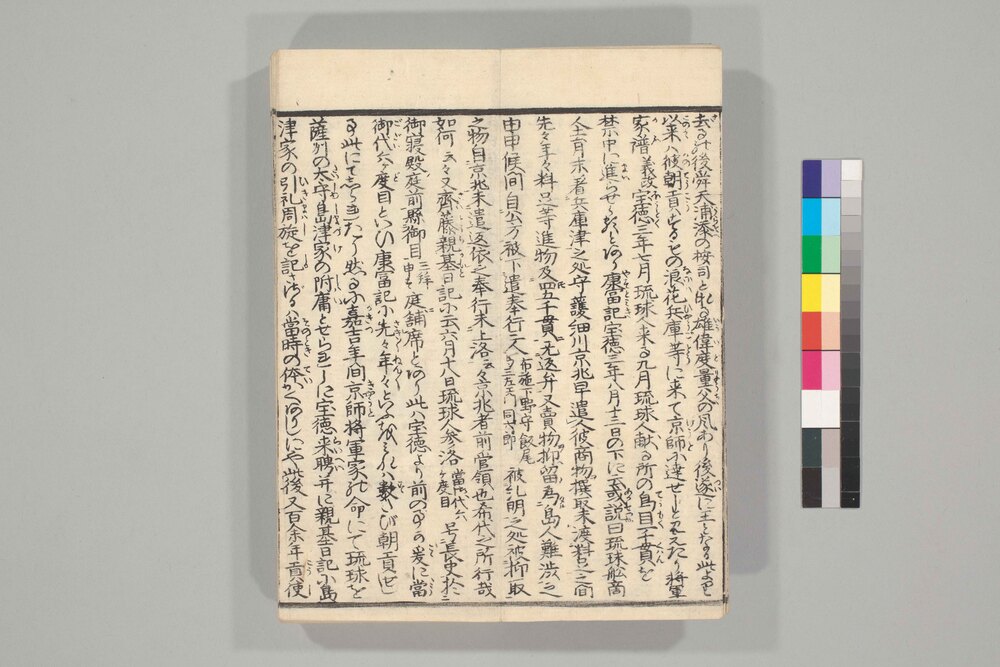 去る此後舜天浦添の按司と也雄偉度量父の風あり後遂に王となる此より
以来入彼朝貢せるもの浪花兵庫等に来て京師に達せしと見えたり将軍
家譜義政宝徳三年七月琉球人来る九月琉球人献る所の鳥目千貫を
禁中に進らせらるとあり康富記宝徳三年八月十三日の下に或説曰琉球船商
人去月末着兵庫津之処守護細川京兆早遣人彼商物撰取未渡料足之間
先々年々料足等進物及四五千貫無返弁又売物抑留為島人難渋之
由申候間自公方被下遣奉行三人布施下野守飯尾 被糺明之処被抑取
之物自京兆未遣返依之奉行未上洛云々京兆者前管領也希代之所行哉
如何云々又斎藤親基日記に云六月十八日琉球人参洛当御代六ケ度目号長史於
御寝殿庭前懸御目申次庭舗席とあり此は宝徳より前の事の爰に当
御代六ケ度目といひ康富記に先々年々といふなれは数さび朝貢せ
る此にてしられたり然るに嘉吉年間京師将軍家の命にて琉球を
薩州の大守島津家の附庸とせられしに宝徳来聘并に親基日記に島
津家の引礼周旋を記さゞるは当時の体かくありしにや此後又百余年貢使